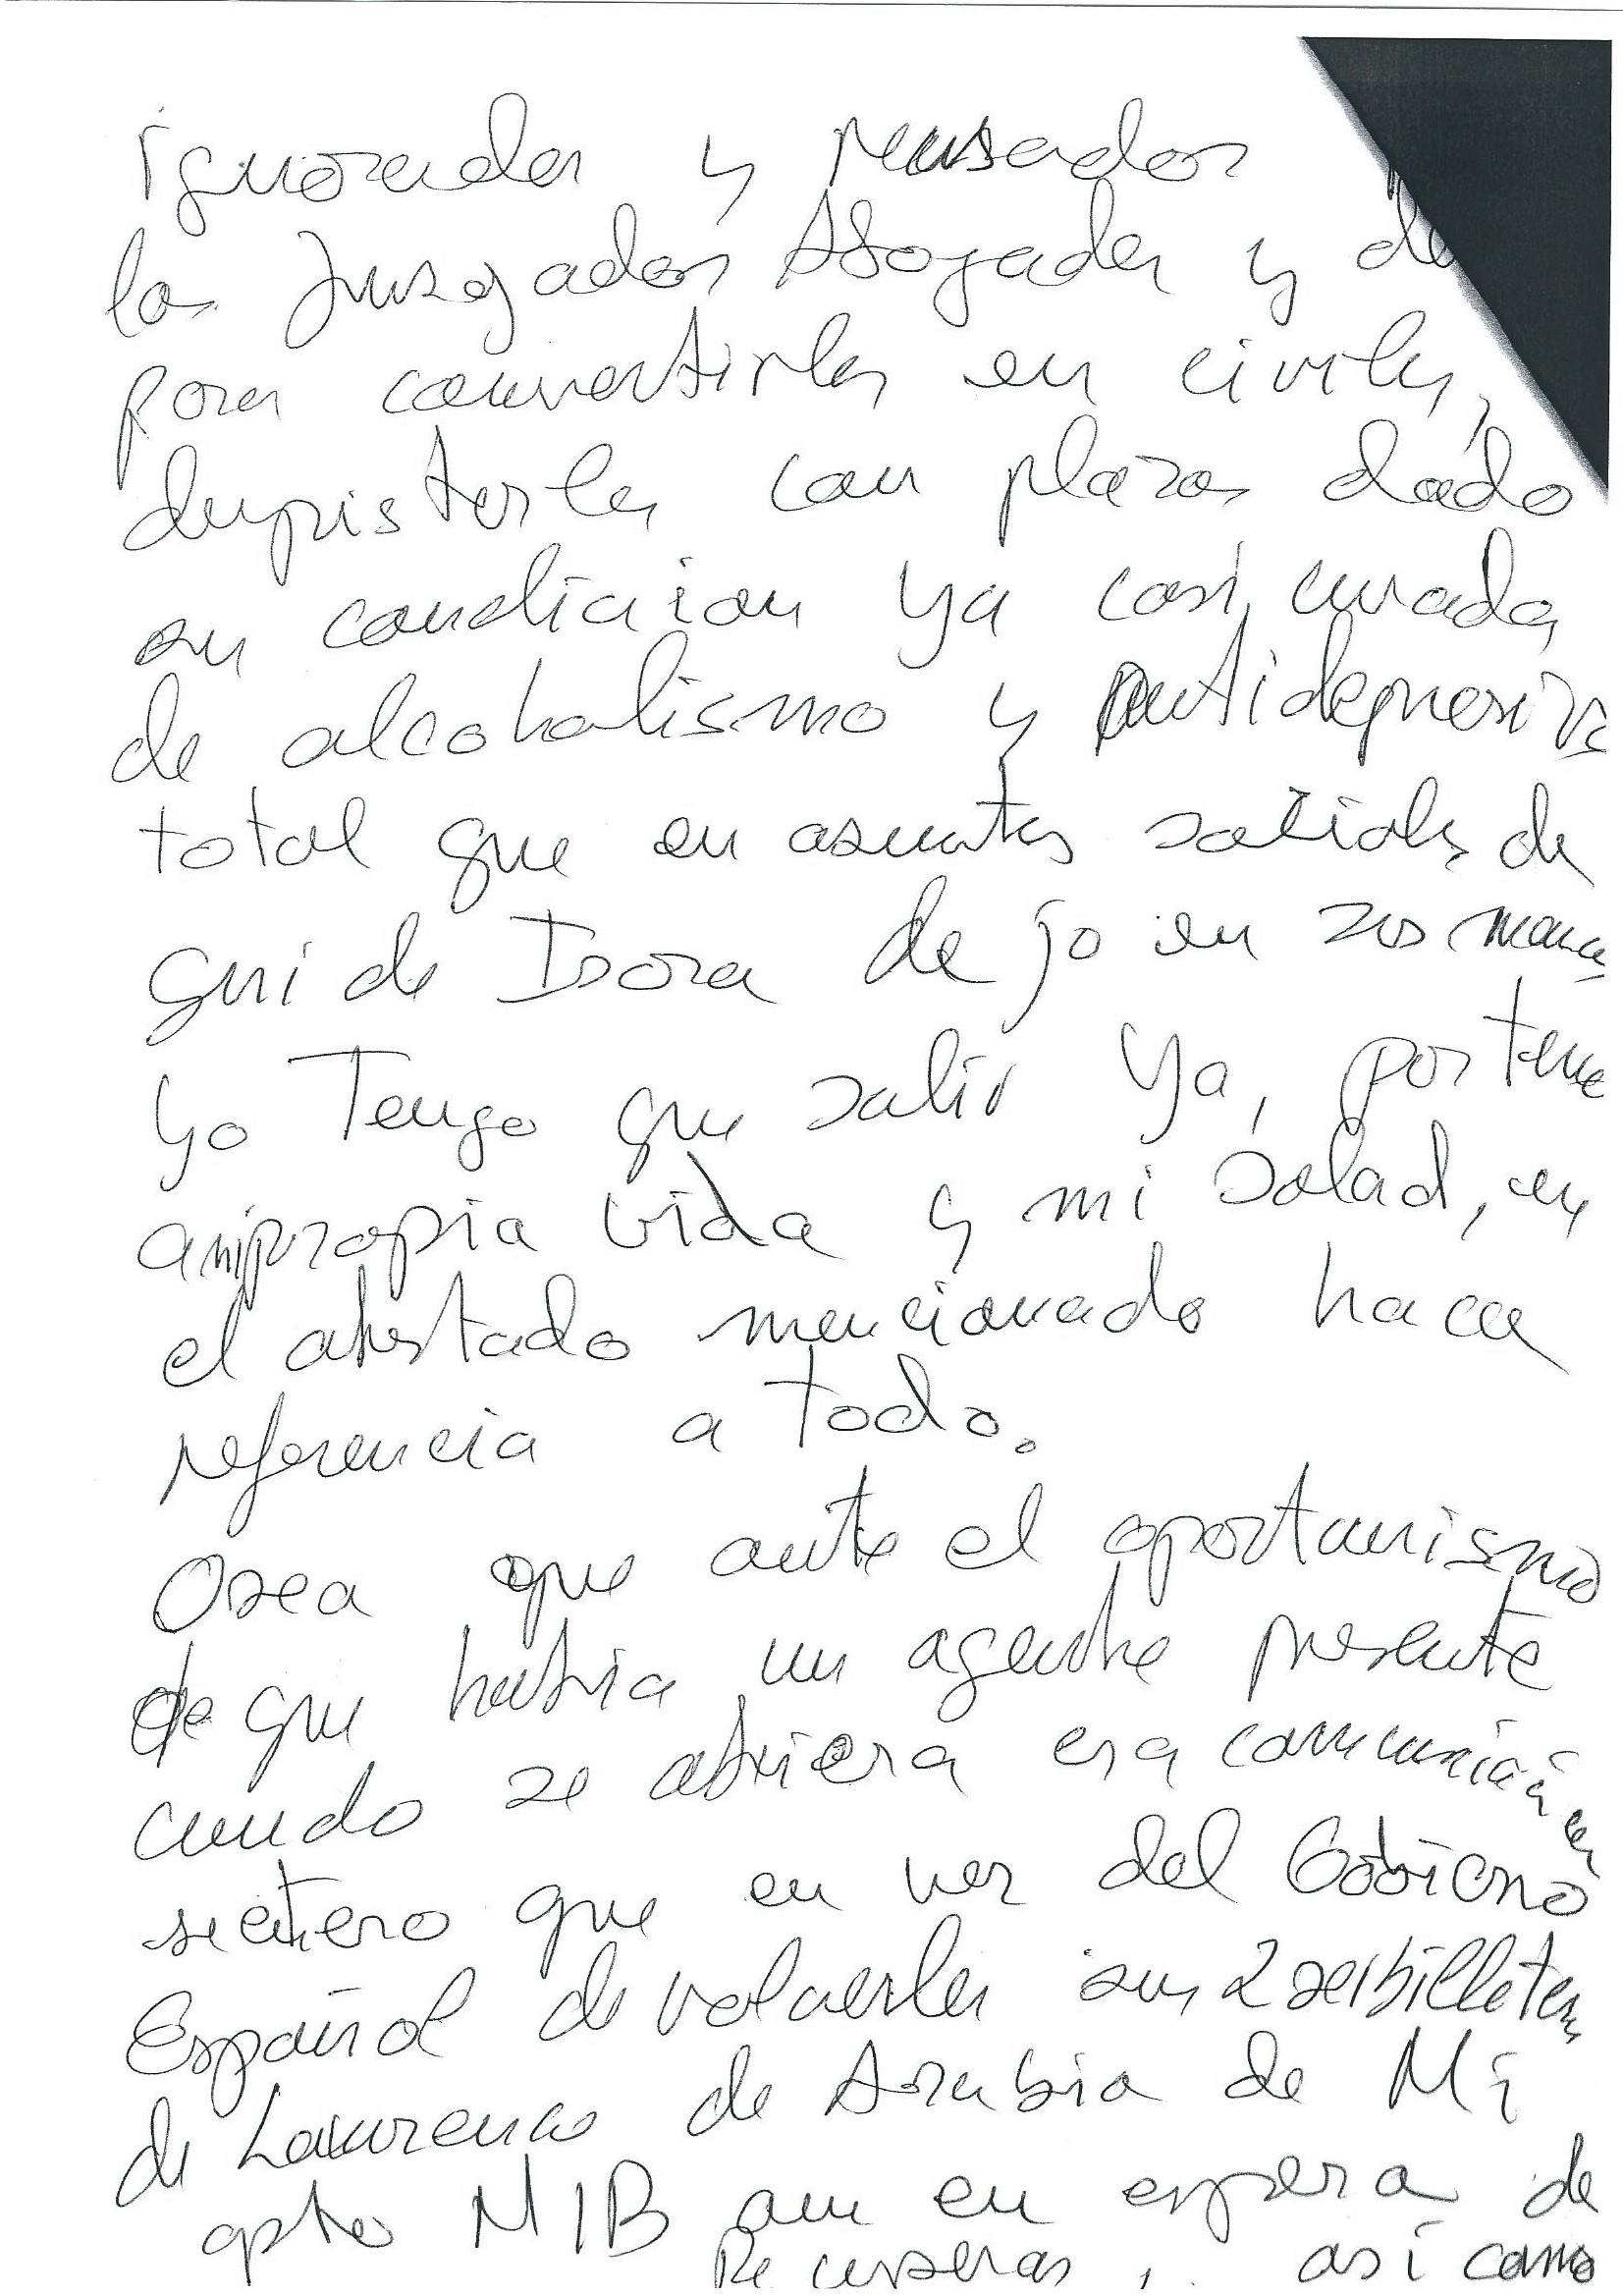 ignoradas y reusadas
los Juzgados Abogados y de
para convertirlas en civiles,
despistarles con plazos dado
su condicion ya casi curada
de alcoholismo y antidepresiva
total que en asuntos sociales de
Gui de Isora dejo en sus manos
yo Tengo que salir ya, por teme
a mi propia vida y mi salud, en
el atestado mencionado hace
referencia a todo.
Osea que ante el oportunismo
de que habia un agente presente
cuando se abriera esa comunicación en
que en vez del Gobierno
Español devolverles sus 2 servilletas
de Lawrence de Arabia de Mi
apto M1B aun en espera de
Recuperar, así como